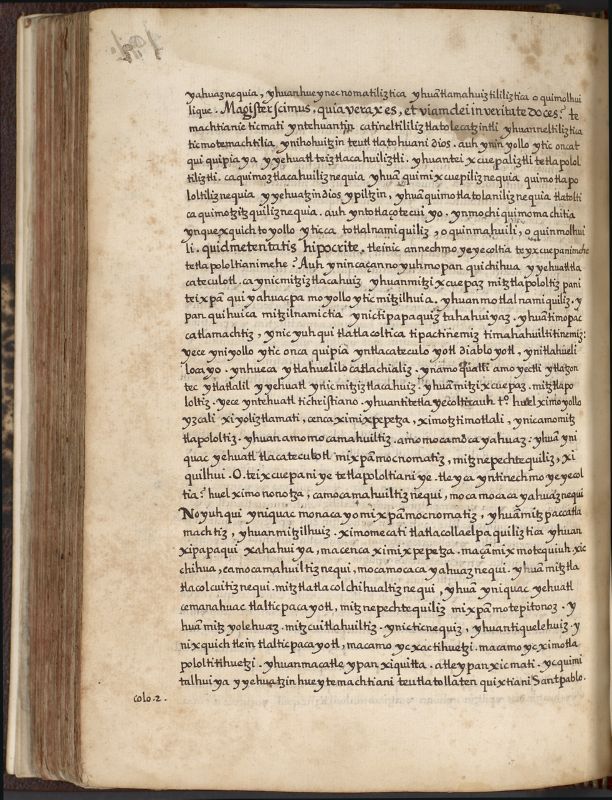 yahuaznequia, yhuanhueynecnomatiliztica yhuãtlamahuiztililiztica oquimolhui
lique. Magister scimus. quia verax es, et viam dei in veritate doces: te
machtianie ticmati yntehuantin ca tineltililiztlatolecatzintli yhuannneltiliztica
ticmotemachtilia, ynihohuitzin teutl tlatohuani dios. auh ynin yollo ytic oncat
qui quipia ya yyehuatl teiztlacahuiliztli. yhuantei xcuepaliztli tetlapolol
tiliztli. caquimoztlacahuiliznequia yhuã quimixcuepiliznequia quimotlapo
loltiliznequia yyehuatzin dios ypiltzin, yhuã quimotlatolaniliznequia tlatolti
ca quimotzitzquiliznequia. auh yn totlaçotecuiyo. ynmochi quimomachitia
ynquexquich to yollo yticca totlalnamiquiliz, oquinmahuili, oquinmolhui
li. quid me tentatis hipocrite. tleinic annechmoyeyecoltia teyxcuepanimehe
tetlapololtianimehe? Auh ynincaçanno yuhmopan quichihua yyehuatl tla
cateculotl. ca ynic mitziztlacahuiz yhuan mitzixcuepaz mitztlapololtiz pani
teixpã qui yahuac pa moyollo ytic mitzilhuia. yhuan motlalnamiquiliz. y
pan quihuica mitzilnamictia ynictipapaquiz tahahuiyaz. yhuã timopac
catlamachtiz, ynic yuh qui tlatlacoltica tipactinemiz timahahuiltitinemiz:
yece yniyollo ytic onca quipia yntlacateculoyotl diabloyotl, ynitlahueli
locayo. ynhueca ytlahuelilocatlachializ. ynamo qualli amo yectli ytlatzon
tec ytlatlalil yyehuatl ynic mitziztlacahuiz. yhuã mitzixcuepaz. mitztlapo
loltiz. yece yntehuatl tichristiano. yhuantitetlayecolticauh tº. huel ximoyollo
yzcali xiyoliztlamati, cenca ximixpepetza, ximotztimotlali, ynicamomitz
tlapololtiz. yhuan amo mocamahuiltiz. amo mocamocayahuaz: yhuã yni
quac yehuatl tlacateculotl mixpãmocnomatiz, mitznepechtequiliz, xi
quilhui. O. teixcuepani ye tetlapololtiani ye. tleyca yntinechmoyeyecol
tia? huel ximononotza, camocamahuiltiznequi, mocamocayahuaznequi
No yuhqui yniquac monacayo mixpãmocnomatiz, yhuã mitzpaccatla
machtiz, yhuan mitzilhuiz. ximomecati tlatlacollaelpaquiliztica yhuan
xipapaqui xahahuiya, macenca ximixpepetza. maçamixmotequiuh xic
chihua, camocamahuiltiznequi. mocamocayahuaznequi. yhuã mitztla
tlacolcuitiznequi. mitztlatlacolchihualtiznequi, yhuã yniquac yehuatl
cemanahuac tlalticpacayotl, mitznepechtequiliz mixpãmotepitonoz. y
huã mitzyolehuaz. mitzcuitlahuiltiz. ynicticnequiz, yhuantiquelehuiz. y
nixquich tlein tlalticpacayotl, macamo ycxactihuetzi. macamo ycximotla
pololtitihuetzi. yhuanmacatle ypan xiquitta. atleypan xicmati. ycquimi
talhuiya yyehuatzin huey temachtiani teutlatollatenquixtiani Sant pablo.
colo. 2.